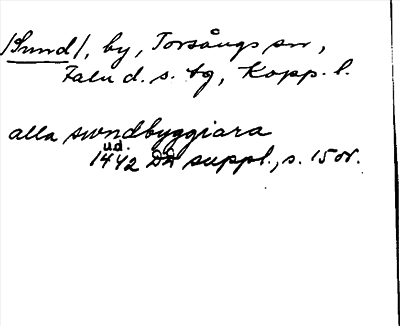 /Sund/, by, Torsångs sn,
Falu d. s. tg, Kopp. l.
alla swndbyggiara
ud.
1442 DD suppl., s. 15 or.